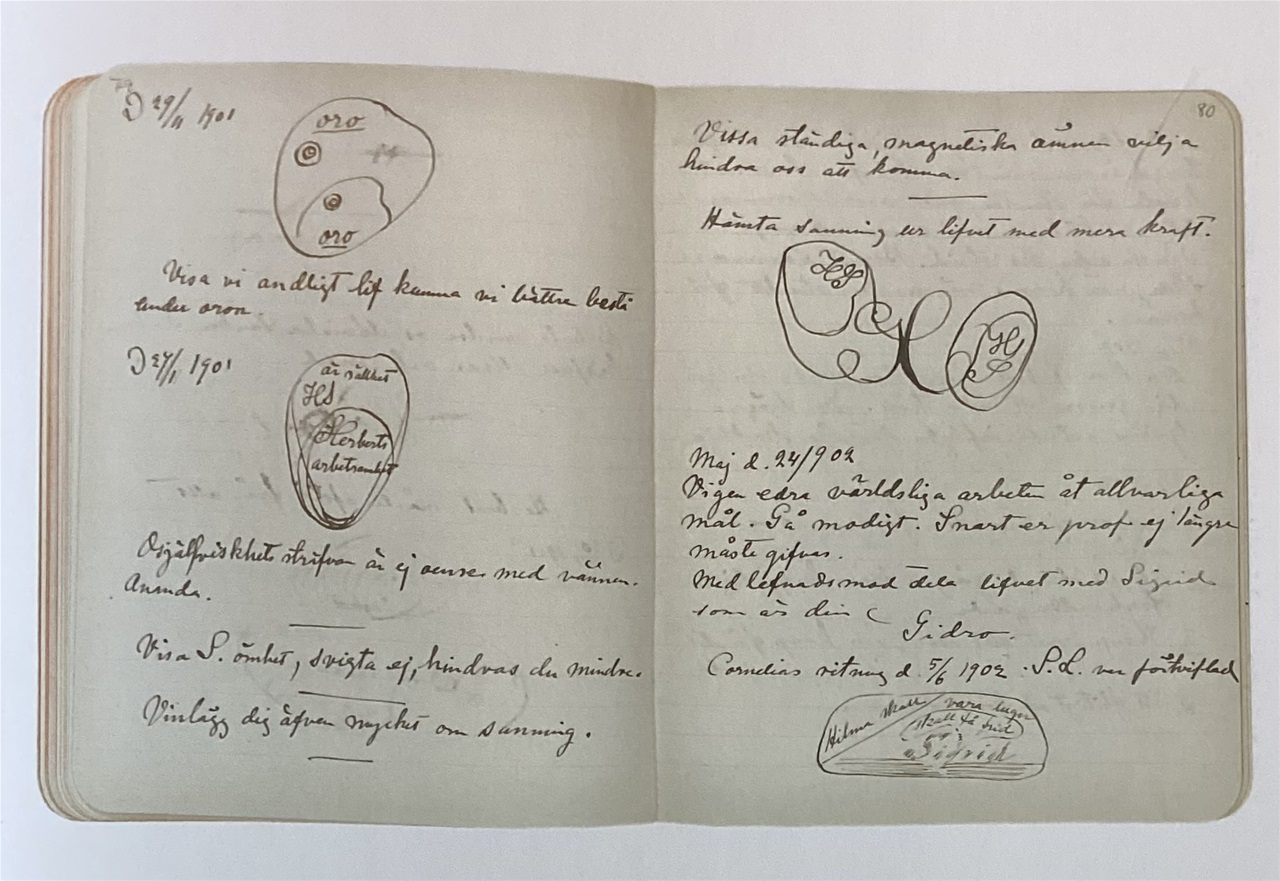 D 29/11 1901
oro
oro
Visa vi andligt lif kunna vi bättre bestå
under oron
D 27/1 1901
är sällhet
HS
Herberts
arbetsamhet
Osjälfviskhets sträfvan är ej oense med vännen.
Ananda.
Visa S. ömhet, svigta ej, hindras du mindre.
Vinlägg dig äfven mycket om sanning.
80
Vissa ständiga, magnetiska ämnen vilja
hindra oss att komma.
Hämta sanning ur lifvet med mera kraft.
HS
H
S
Maj d. 24/902
Vigen edra världsliga arbeten åt allvarliga
mål. Gå modigt. Snart er prof ej längre
måste gifvas.
Med lefnadsmod dela lifvet med Sigrid
som är din (
Gidro.
Cornelias ritning d. 5/6 1902. S.L. var förtviflad
Hilma skall vara lugn
skall få frid
Sigrid